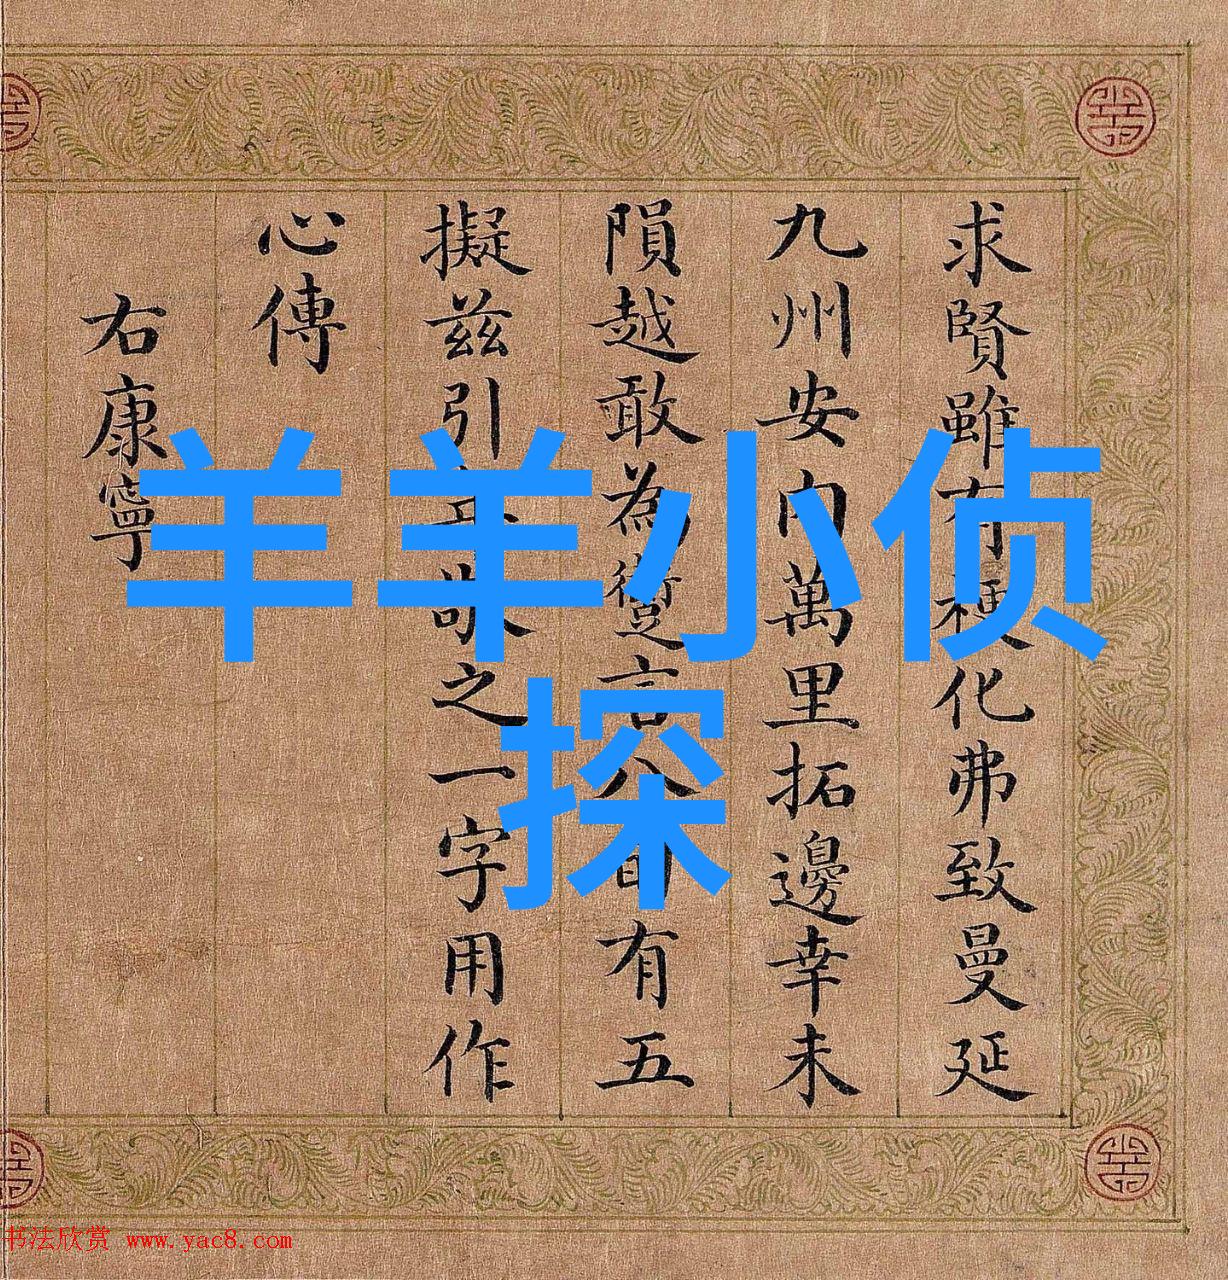 求賢雖有梗化弗致曼延
九州安内萬里拓邊幸未
隕越敢為躗言八旬有五
擬兹引年敬之一字用作
心傳
右康寧
羊羊小侦
探
书法欣赏 www.yac8.com